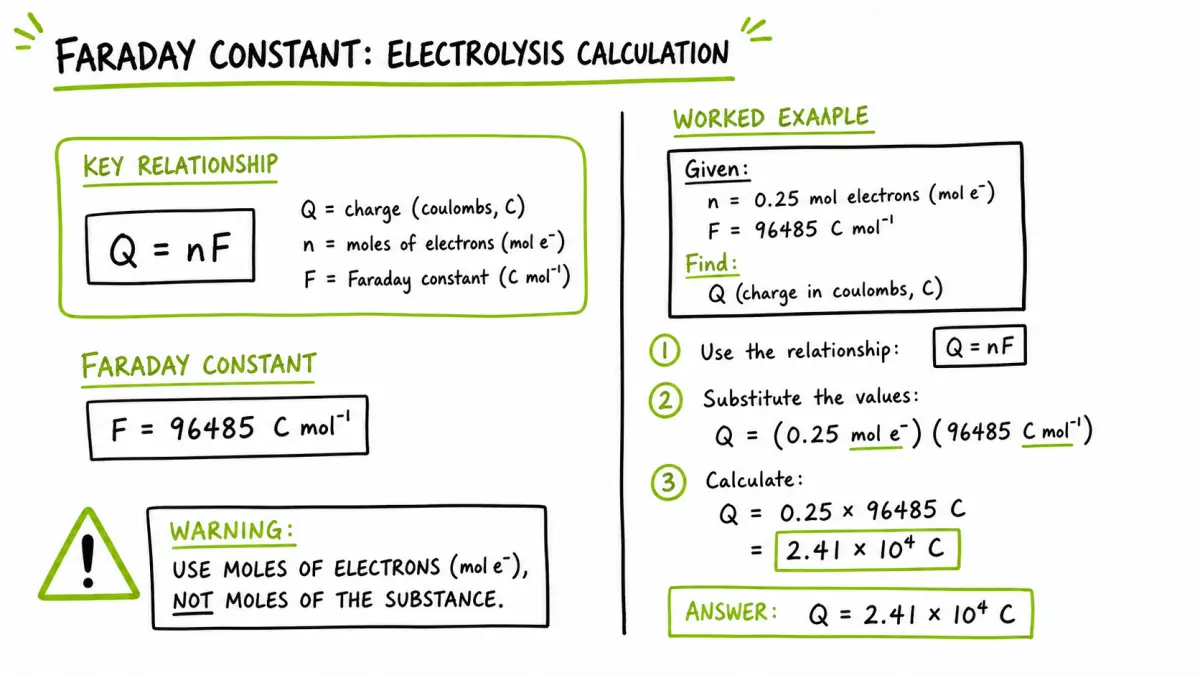 FARADAY CONSTANT: ELECTROLYSIS CALCULATION
KEY RELATIONSHIP
Q = nF
Q = charge (coulombs, C)
n = moles of electrons (mol e⁻)
F = Faraday constant (C mol⁻¹)
FARADAY CONSTANT
F = 96485 C mol⁻¹
!
WARNING:
USE MOLES OF ELECTRONS (mol e⁻),
NOT MOLES OF THE SUBSTANCE.
WORKED EXAMPLE
Given:
n = 0.25 mol electrons (mol e⁻)
F = 96485 C mol⁻¹
Find:
Q (charge in coulombs, C)
1 Use the relationship: Q = nF
2 Substitute the values:
Q = (0.25 mol e⁻) (96485 C mol⁻¹)
3 Calculate:
Q = 0.25 × 96485 C
= 2.41 × 10⁴ C
ANSWER: Q = 2.41 × 10⁴ C